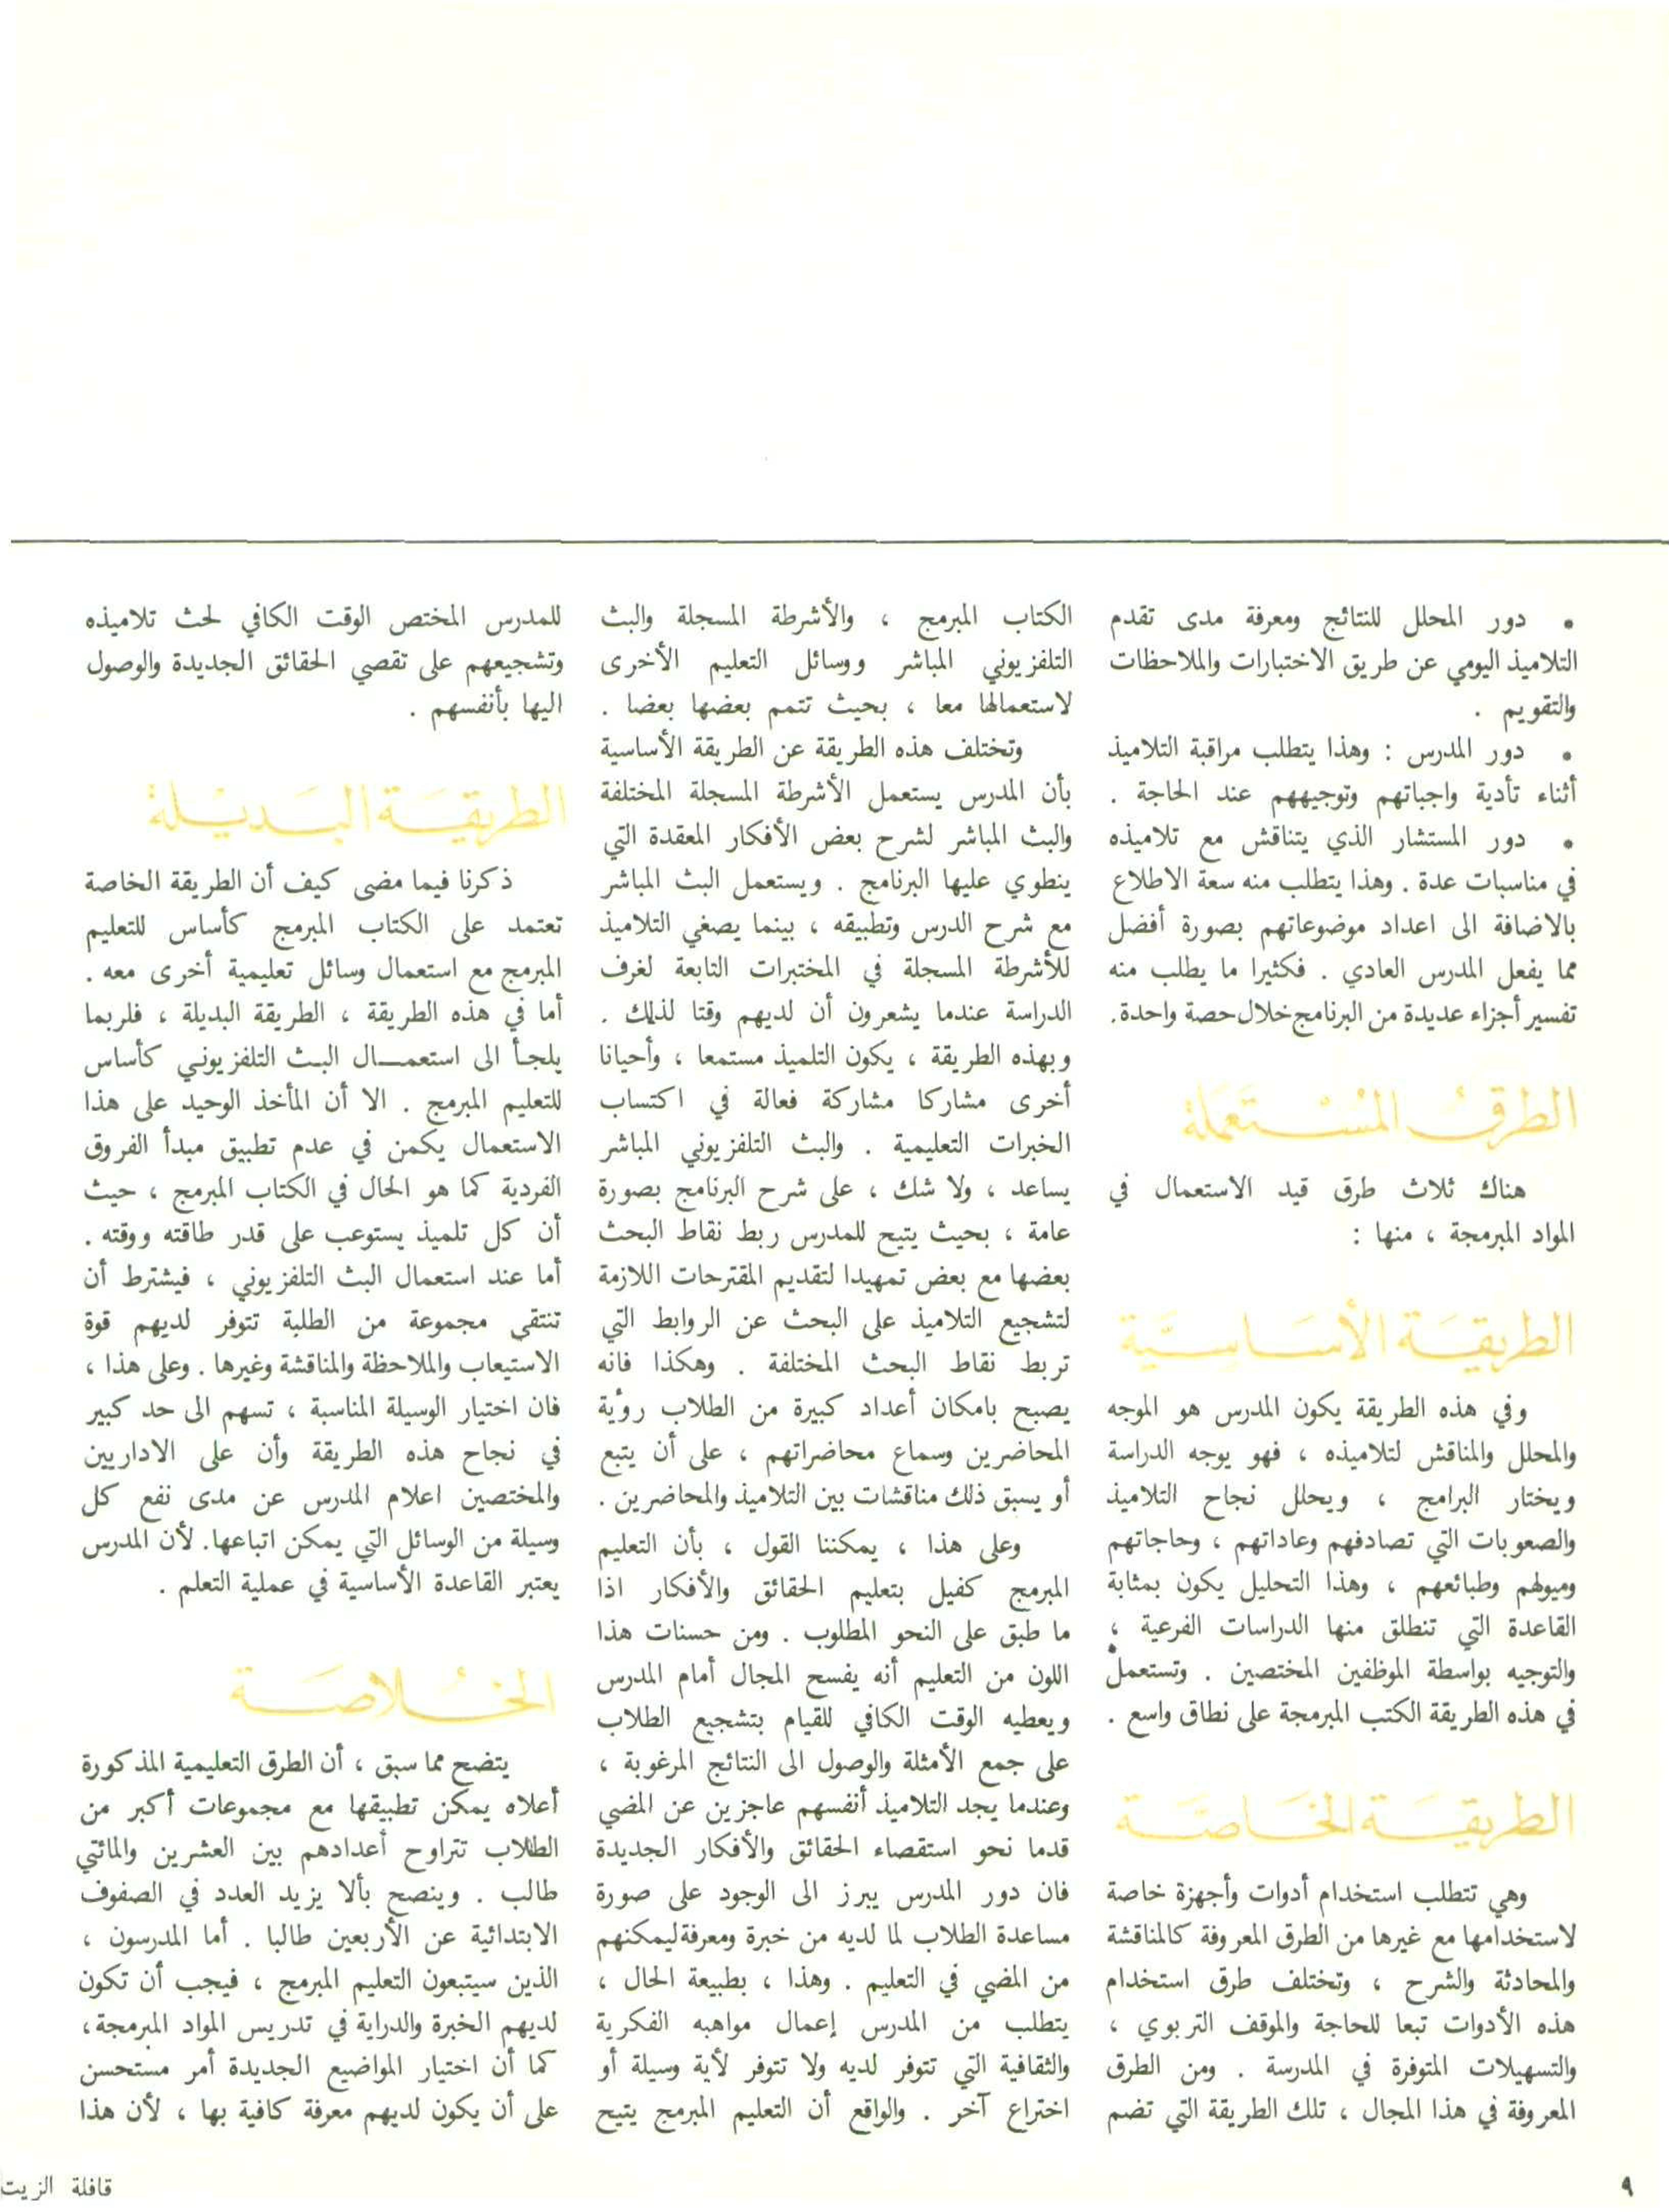 • دور المحلل للنتائج ومعرفة مدى تقدم
التلاميذ اليومي عن طريق الاختبارات والملاحظات
والتقويم .
• دور المدرس : وهذا يتطلب مراقبة التلاميذ
أثناء تأدية واجباتهم وتوجيههم عند الحاجة .
• دور المستشار الذي يتناقش مع تلاميذه
في مناسبات عدة . وهذا يتطلب منه سعة الاطلاع
بالاضافة الى اعداد موضوعاتهم بصورة أفضل
مما يفعل المدرس العادي . فكثيرا ما يطلب منه
تفسير أجزاء عديدة من البرنامج خلال حصة واحدة.
الطرق المستعملة
هناك ثلاث طرق قيد الاستعمال في
المواد المبرمجة ، منها :
الطريقة الأساسية
وفي هذه الطريقة يكون المدرس هو الموجه
والمحلل والمناقش لتلاميذه ، فهو يوجه الدراسة
ويختار البرامج ، ويحلل نجاح التلاميذ
والصعوبات التي تصادفهم وعاداتهم ، وحاجاتهم
وميولهم وطبائعهم ، وهذا التحليل يكون بمثابة
القاعدة التي تنطلق منها الدراسات الفرعية ،
والتوجيه بواسطة الموظفين المختصين . وتستعمل
في هذه الطريقة الكتب المبرمجة على نطاق واسع .
الطريقة الخاصة
وهي تتطلب استخدام أدوات وأجهزة خاصة
لاستخدامها مع غيرها من الطرق المعروفة كالمناقشة
والمحادثة والشرح ، وتختلف طرق استخدام
هذه الأدوات تبعا للحاجة والموقف التربوي ،
والتسهيلات المتوفرة في المدرسة . ومن الطرق
المعروفة في هذا المجال ، تلك الطريقة التي تضم
الكتاب المبرمج ، والأشرطة المسجلة والبث
التلفزيوني المباشر ووسائل التعليم الأخرى
لاستعمالها معا ، بحيث تتمم بعضها بعضا .
وتختلف هذه الطريقة عن الطريقة الأساسية
بأن المدرس يستعمل الأشرطة المسجلة المختلفة
والبث المباشر لشرح بعض الأفكار المعقدة التي
ينطوي عليها البرنامج . ويستعمل البث المباشر
مع شرح الدرس وتطبيقه ، بينما يصغي التلاميذ
للأشرطة المسجلة في المختبرات التابعة لغرف
الدراسة عندما يشعرون أن لديهم وقتا لذلك .
وبهذه الطريقة ، يكون التلميذ مستمعا ، وأحيانا
أخرى مشاركا مشاركة فعالة في اكتساب
الخبرات التعليمية . والبث التلفزيوني المباشر
يساعد ، ولا شك ، على شرح البرنامج بصورة
عامة ، بحيث يتيح للمدرس ربط نقاط البحث
بعضها مع بعض تمهيدا لتقديم المقترحات اللازمة
لتشجيع التلاميذ على البحث عن الروابط التي
تربط نقاط البحث المختلفة . وهكذا فانه
يصبح بامكان أعداد كبيرة من الطلاب رؤية
المحاضرين وسماع محاضراتهم ، على أن يتبع
أو يسبق ذلك مناقشات بين التلاميذ والمحاضرين .
وعلى هذا ، يمكننا القول ، بأن التعليم
المبرمج كفيل بتعليم الحقائق والأفكار اذا
ما طبق على النحو المطلوب . ومن حسنات هذا
اللون من التعليم أنه يفسح المجال أمام المدرس
ويعطيه الوقت الكافي للقيام بتشجيع الطلاب
على جمع الأمثلة والوصول الى النتائج المرغوبة ،
وعندما يجد التلاميذ أنفسهم عاجزين عن المضي
قدما نحو استقصاء الحقائق والأفكار الجديدة
فان دور المدرس يبرز الى الوجود على صورة
مساعدة الطلاب لما لديه من خبرة ومعرفة ليمكنهم
من المضي في التعليم . وهذا ، بطبيعة الحال ،
يتطلب من المدرس إعمال مواهبه الفكرية
والثقافية التي تتوفر لديه ولا تتوفر لأية وسيلة أو
اختراع آخر . والواقع أن التعليم المبرمج يتيح
للمدرس المختص الوقت الكافي لحث تلاميذه
وتشجيعهم على تقصي الحقائق الجديدة والوصول
اليها بأنفسهم .
الطريقة البديلة
ذكرنا فيما مضى كيف أن الطريقة الخاصة
تعتمد على الكتاب المبرمج كأساس للتعليم
المبرمج مع استعمال وسائل تعليمية أخرى معه .
أما في هذه الطريقة ، الطريقة البديلة ، فلربما
يلجأ الى استعمال البث التلفزيوني كأساس
للتعليم المبرمج . الا أن المأخذ الوحيد على هذا
الاستعمال يكمن في عدم تطبيق مبدأ الفروق
الفردية كما هو الحال في الكتاب المبرمج ، حيث
أن كل تلميذ يستوعب على قدر طاقته ووقته .
أما عند استعمال البث التلفزيوني ، فيشترط أن
تنتقى مجموعة من الطلبة تتوفر لديهم قوة
الاستيعاب والملاحظة والمناقشة وغيرها . وعلى هذا ،
فان اختيار الوسيلة المناسبة ، تسهم الى حد كبير
في نجاح هذه الطريقة وأن على الاداريين
والمختصين اعلام المدرس عن مدى نفع كل
وسيلة من الوسائل التي يمكن اتباعها. لأن المدرس
يعتبر القاعدة الأساسية في عملية التعلم .
الخلاصة
يتضح مما سبق ، أن الطرق التعليمية المذكورة
أعلاه يمكن تطبيقها مع مجموعات أكبر من
الطلاب تتراوح أعدادهم بين العشرين والمائتي
طالب . وينصح بألا يزيد العدد في الصفوف
الابتدائية عن الأربعين طالبا . أما المدرسون ،
الذين سيتبعون التعليم المبرمج ، فيجب أن تكون
لديهم الخبرة والدراية في تدريس المواد المبرمجة،
كما أن اختيار المواضيع الجديدة أمر مستحسن
على أن يكون لديهم معرفة كافية بها ، لأن هذا
٩
قافلة الزيت